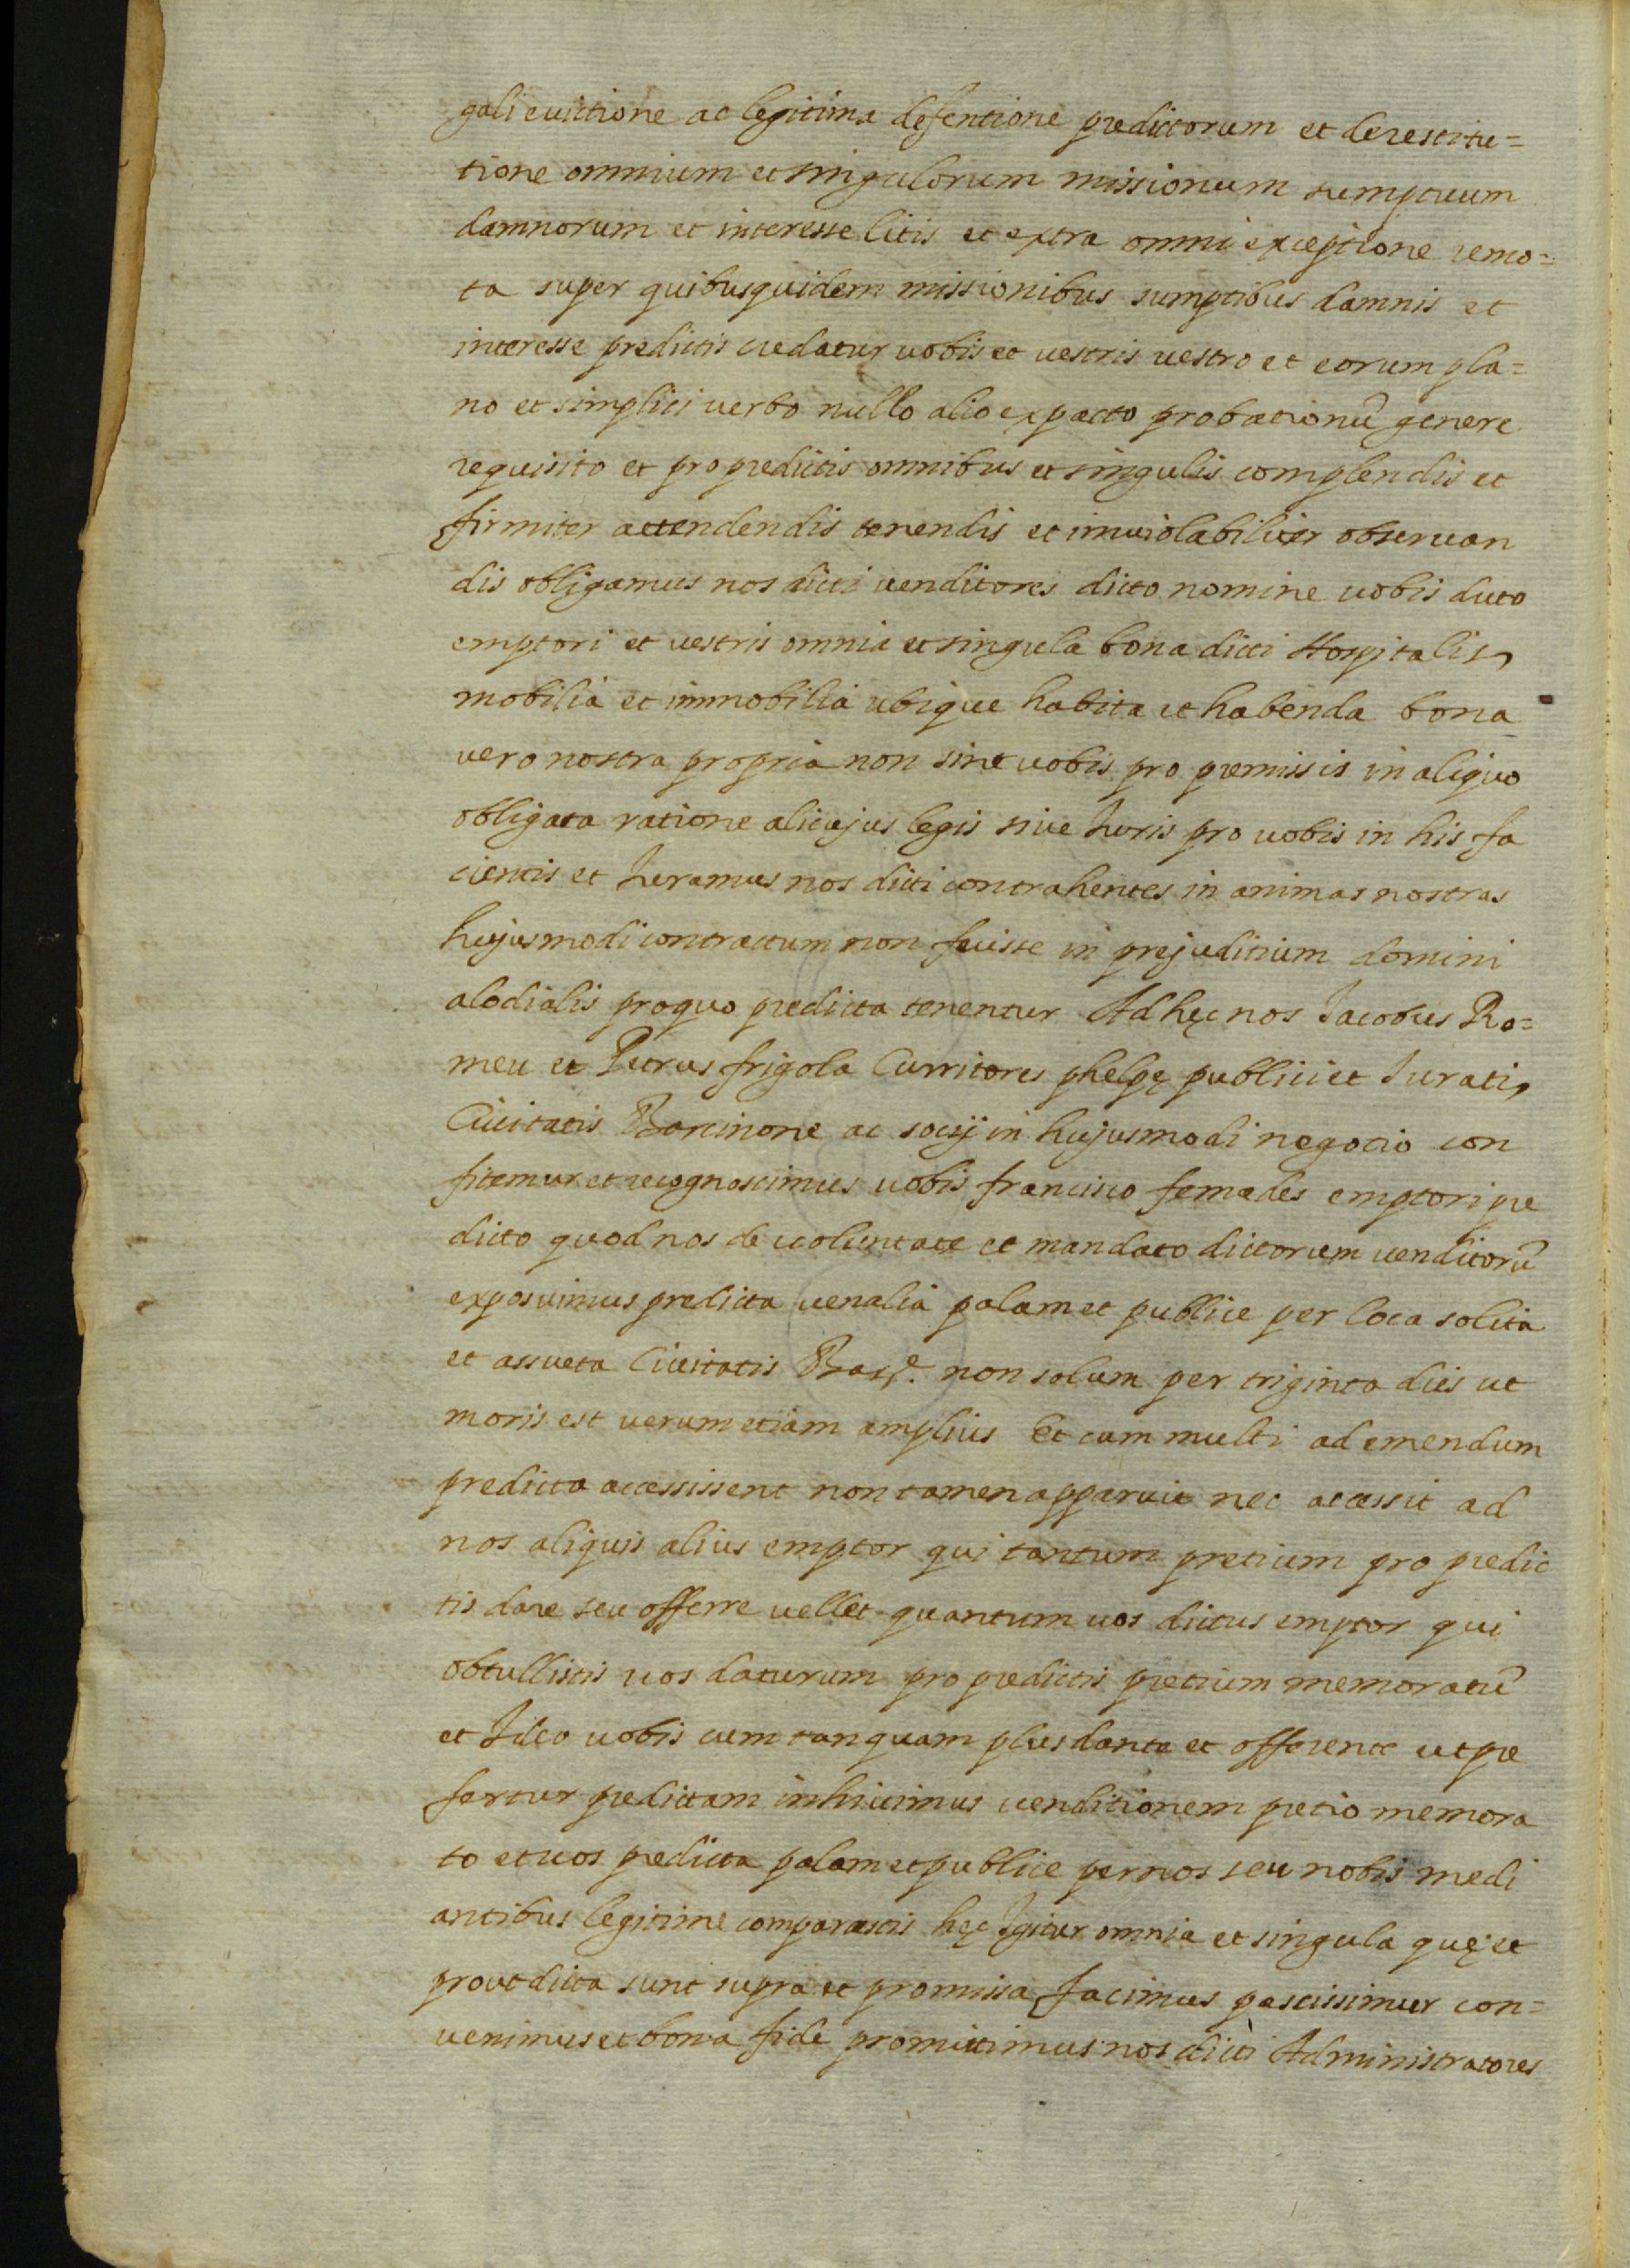 gali euictione ac legitima defentione predictorum et de restitu=
tione omnium et singulorum missionum sumptuum
damnorum et interesse litis et extra omni exceptione remo=
ta super quibusquidem missionibus sumptibus damnis et
interesse predictis credatur uobis et uestris uestro et eorum pla=
no et simplici uerbo nullo alio expacto probationũ genere
requisito et pro predictis omnibus et singulis complendis et
firmiter attendendis tenendis et inuiolabiliter obseruan
dis obligamus nos dicti uenditores dicto nomine uobis dicto
emptori et uestris omnia et singula bona dicti Hospitalis
mobilia et immobilia ubique habita et habenda bona
uero nostra propria non sint uobis pro premissis in aliquo
obligata ratione alicujus legis siue Iuris pro uobis in his fa
cientis et Iuramus nos dicti contrahentes in animas nostras
hujusmodi contractum non fuisse in prejuditium domini
alodialis pro quo predicta tenentur Ad hęc nos Iacobus Ro=
meu et Petrus frigola Curritores phelpę publici et Iurati,
Ciuitatis Barcinone ac socij in hujusmodi negotio con
fitemur et recognoscimus uobis francisco femades emptori pre
dicto quod nos de uoluntate et mandato dictorum uenditorũ
exposuimus predicta uenalia palam et publice per loca solita
et assueta Ciuitatis Barᵉ. non solum per triginta dies ut
moris est uerum etiam amplius Et cum multi ad emendum
predicta accessissent non tamen apparuit nec accessit ad
nos aliquis alius emptor qui tantum pretium pro predic
tis dare seu offerre uellet quantum uos dictus emptor qui
obtullistis uos daturum pro predictis pretium memoratũ
et Ideo uobis cum tanquam plus dante et offerente ut pre
fertur predictam inhiuimus uenditionem pretio memora
to et uos predicta palam et publice per nos seu nobis medi
antibus legitime comparastis hęc Igitur omnia et singula quę et
prout dicta sunt supra et promissa facimus pascissimur con=
uenimus et bona fide promittimus nos dicti Administratores